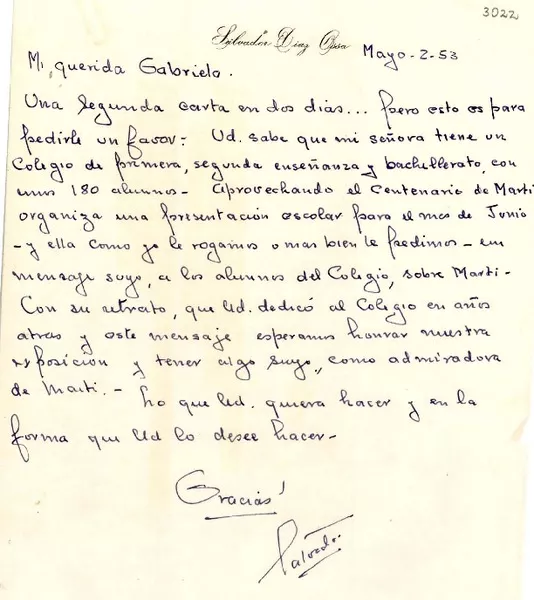 3022
Salvador Diaz Ossa
Mayo-2-53
Mi querida Gabriela.
Una segunda carta en dos días... pero esto es para
pedirle un favor: Ud. sabe que mi señora tiene un
Colegio de primera, segunda enseñanza y bachillerato, con
unos 180 alumnos - Aprovechando el Centenario de Martí
organiza una presentación escolar para el mes de Junio
- y ella como yo le rogamos o mas bien le pedimos - un
mensaje suyo, a los alumnos del Colegio, sobre Martí -
Con su retrato, que Ud. dedicó al Colegio en años
atras y este mensaje esperamos honrar nuestra
exposición y tener algo suyo, como admiradora
de Martí. - Lo que Ud. quiera hacer y en la
forma que Ud lo desee hacer -
Gracias!
Salvador